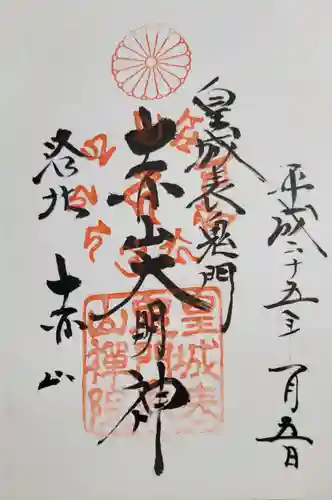 平成二十五年一月五日
皇城表鬼門
赤山大明神
洛北
赤山
皇城表
山禅院